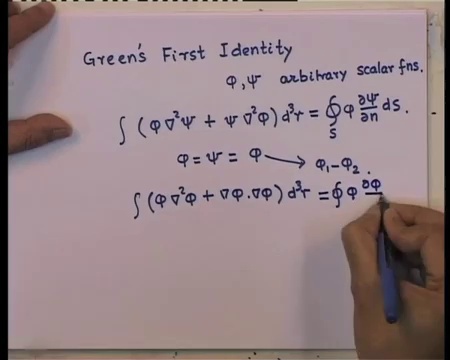 Green's First Identity
φ, ψ arbitrary scalar fns.
∫ (φ ∇²ψ + ψ ∇²φ) d³r = ∮_S φ ∂ψ/∂n dS.
φ = ψ = φ → φ₁ − φ₂ .
∫ (φ ∇²φ + ∇φ . ∇φ) d³r = ∮ φ ∂φ